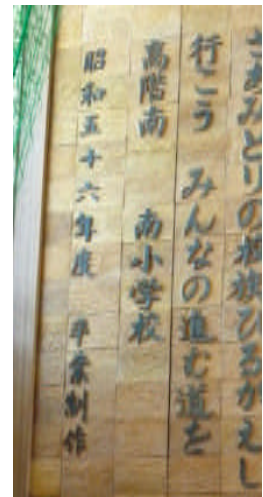 さあみとりの校旗ひるがえし
行こう　みんなの進む道を
高階南　南小学校
昭和五十六年度　卒業制作